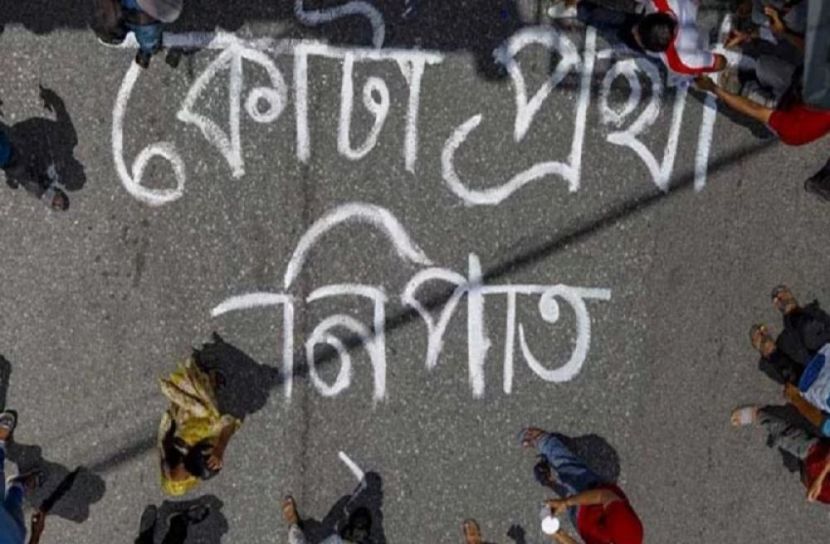 কোটা প্রথা
নিপাত